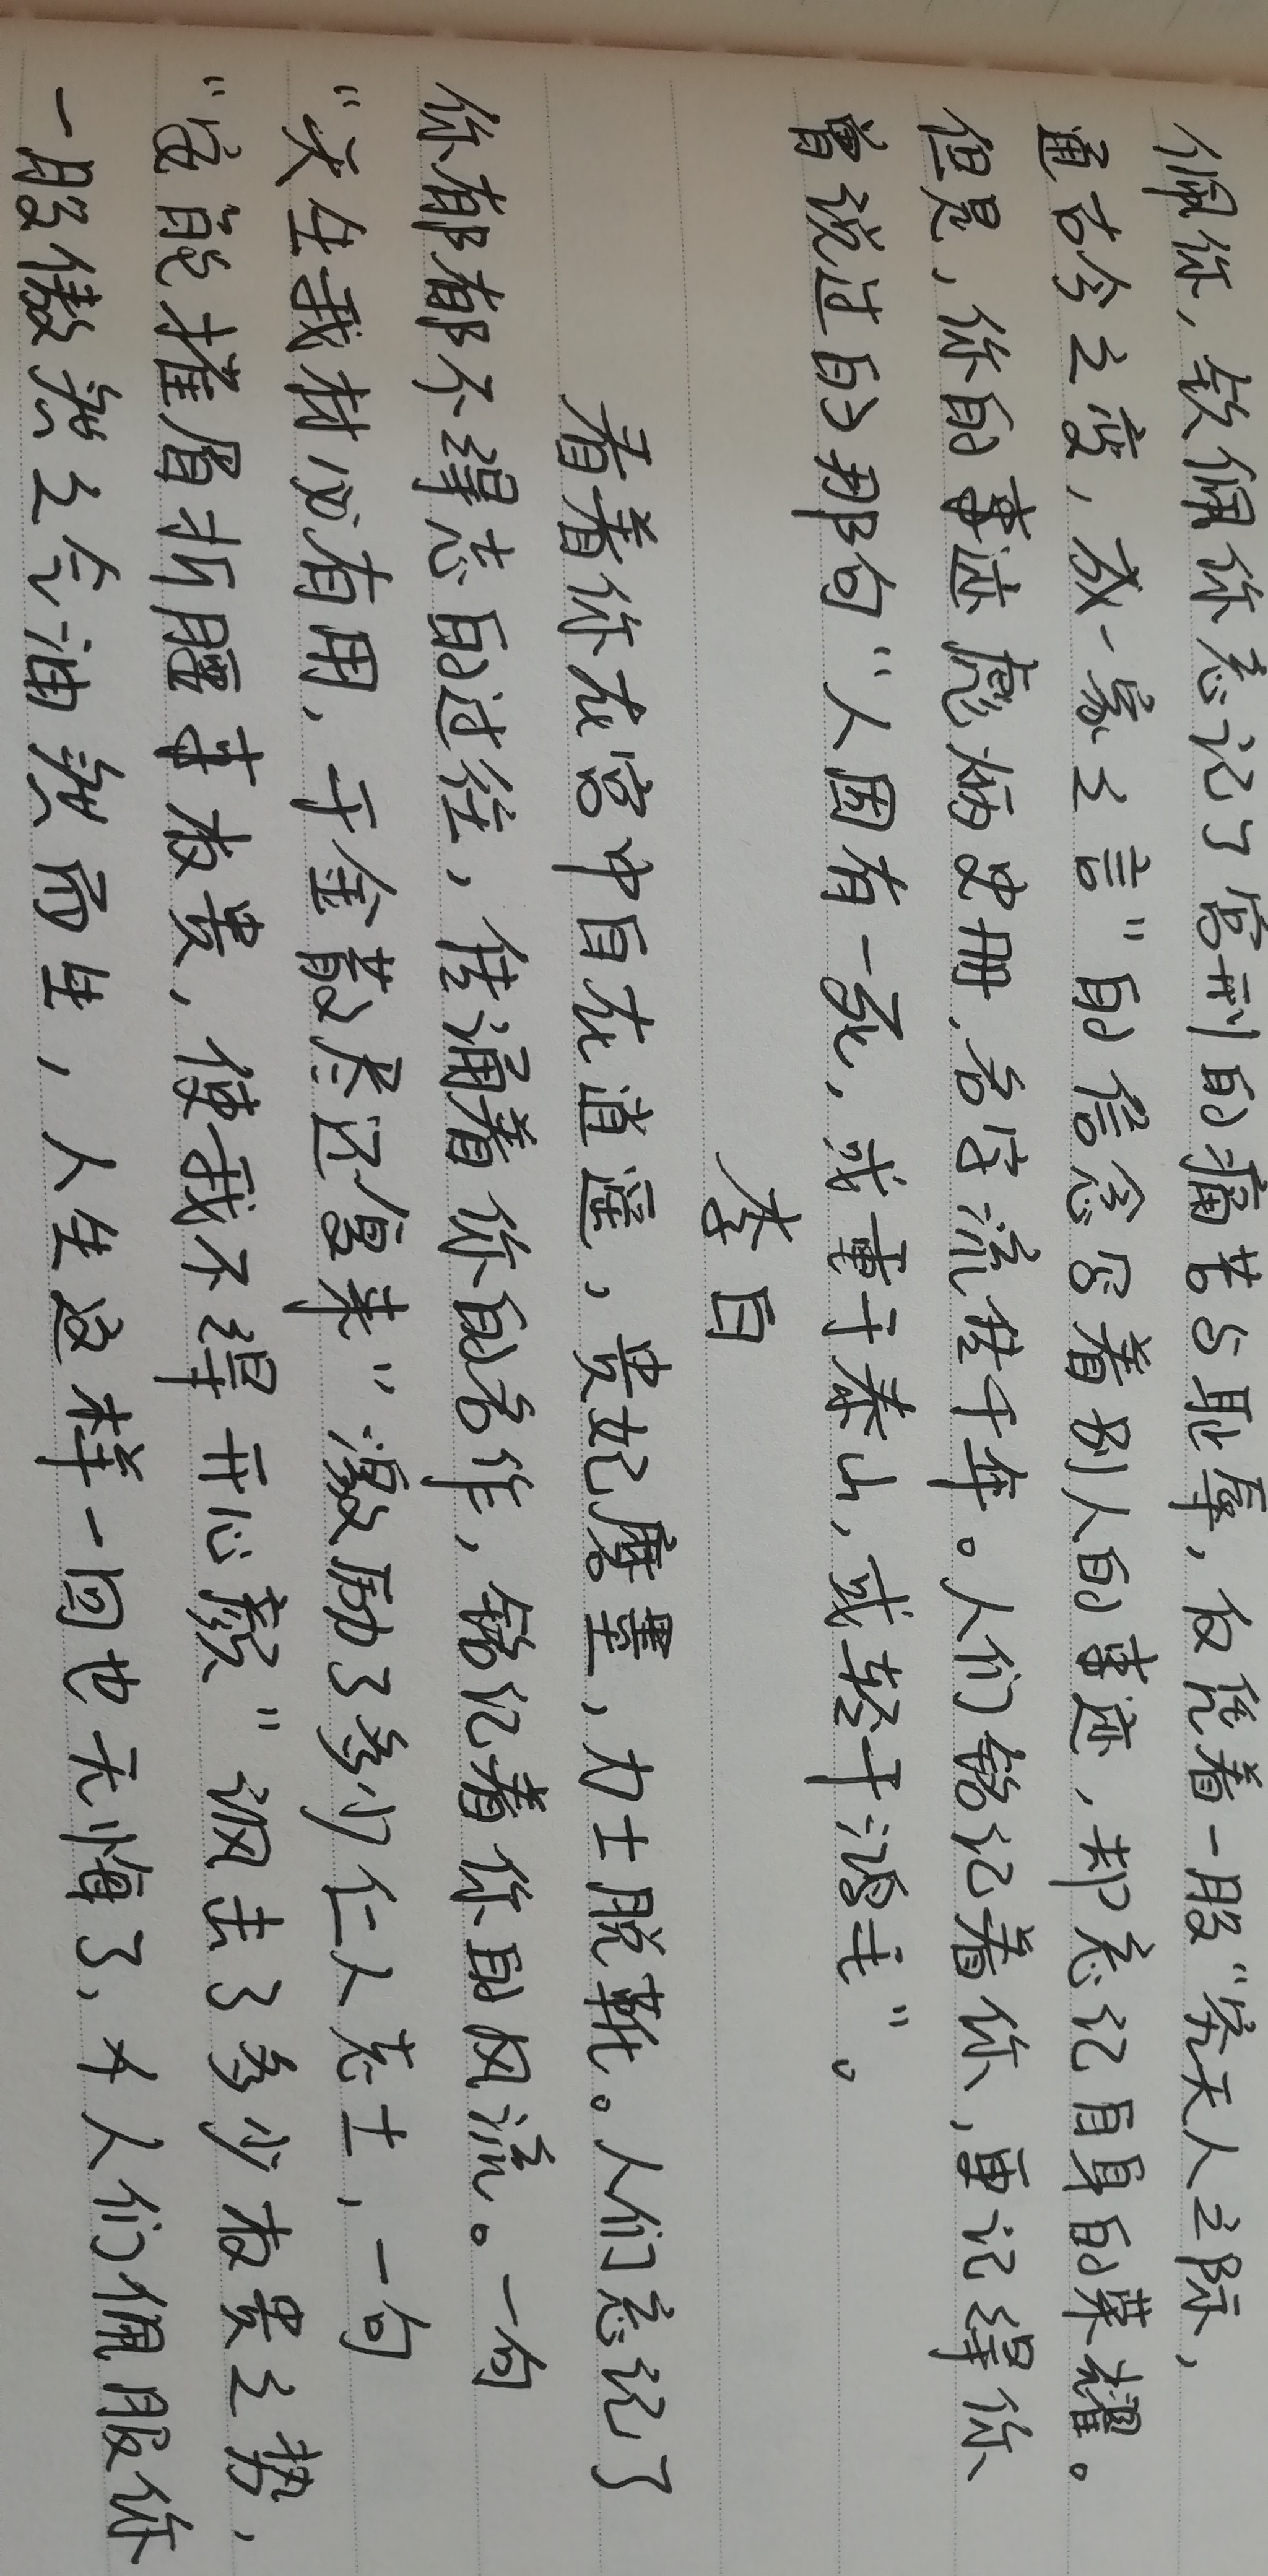 佩你，钦佩你忘记了宫刑的痛苦与耻辱，仅凭着一股“究天人之际，
通古今之变，成一家之言”的信念写着别人的事迹，却忘记自身的荣耀。
但是，你的事迹彪炳史册，名字流传千年。人们铭记着你，更记得你
曾说过的那句“人固有一死，或重于泰山，或轻于鸿毛”。
李白
看着你在宫中自在逍遥，贵妃磨墨，力士脱靴。人们忘记了
你郁郁不得志的过往，传诵着你的名作，铭记着你的风流。一句
“天生我材必有用，千金散尽还复来”激励了多少仁人志士，一句
“安能摧眉折腰事权贵，使我不得开心颜”讽去了多少权贵之势，
一股傲然之气油然而生，人生这样一回也无悔了，才人们佩服你